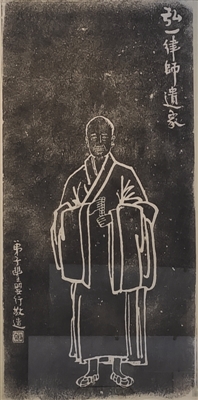 弘一律師遺象
弟子豐子愷行敬造